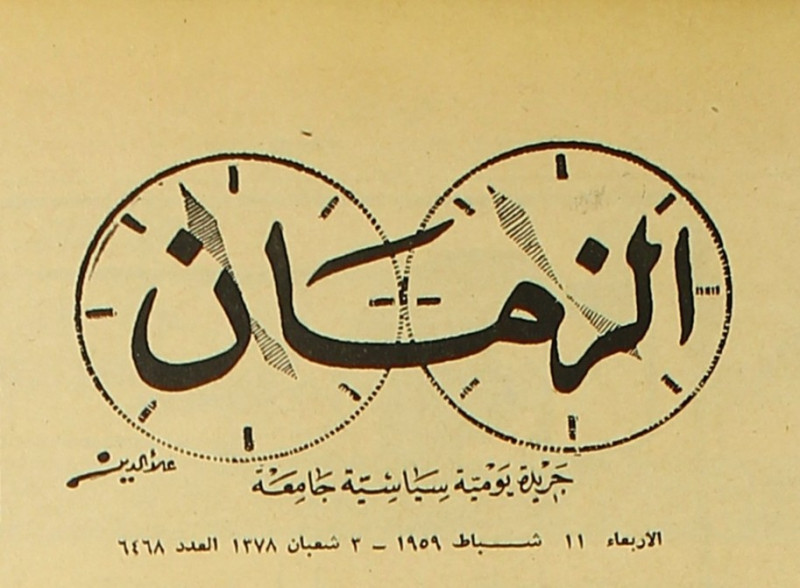 الزمان
علاء الدين
جريدة يومية سياسية جامعة
الاربعاء ١١ شباط ١٩٥٩ – ٣ شعبان ١٣٧٨ العدد ٦٤٦٨